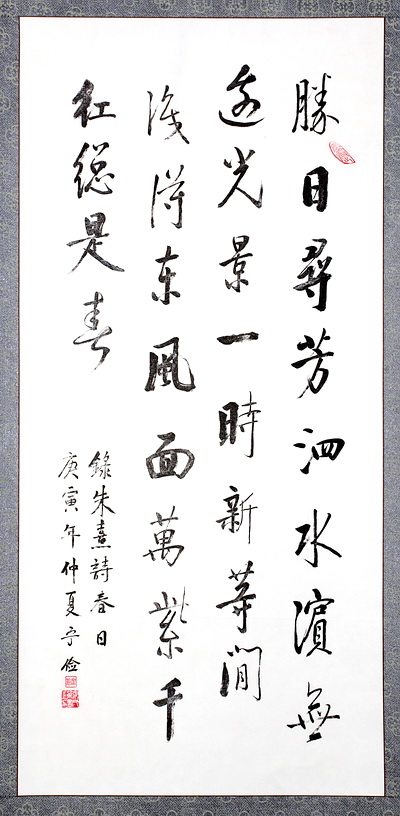 勝日尋芳泗水濱無
邊光景一時新等閒
識得東風面萬紫千
紅總是春
錄朱熹詩春日
庚寅年仲夏